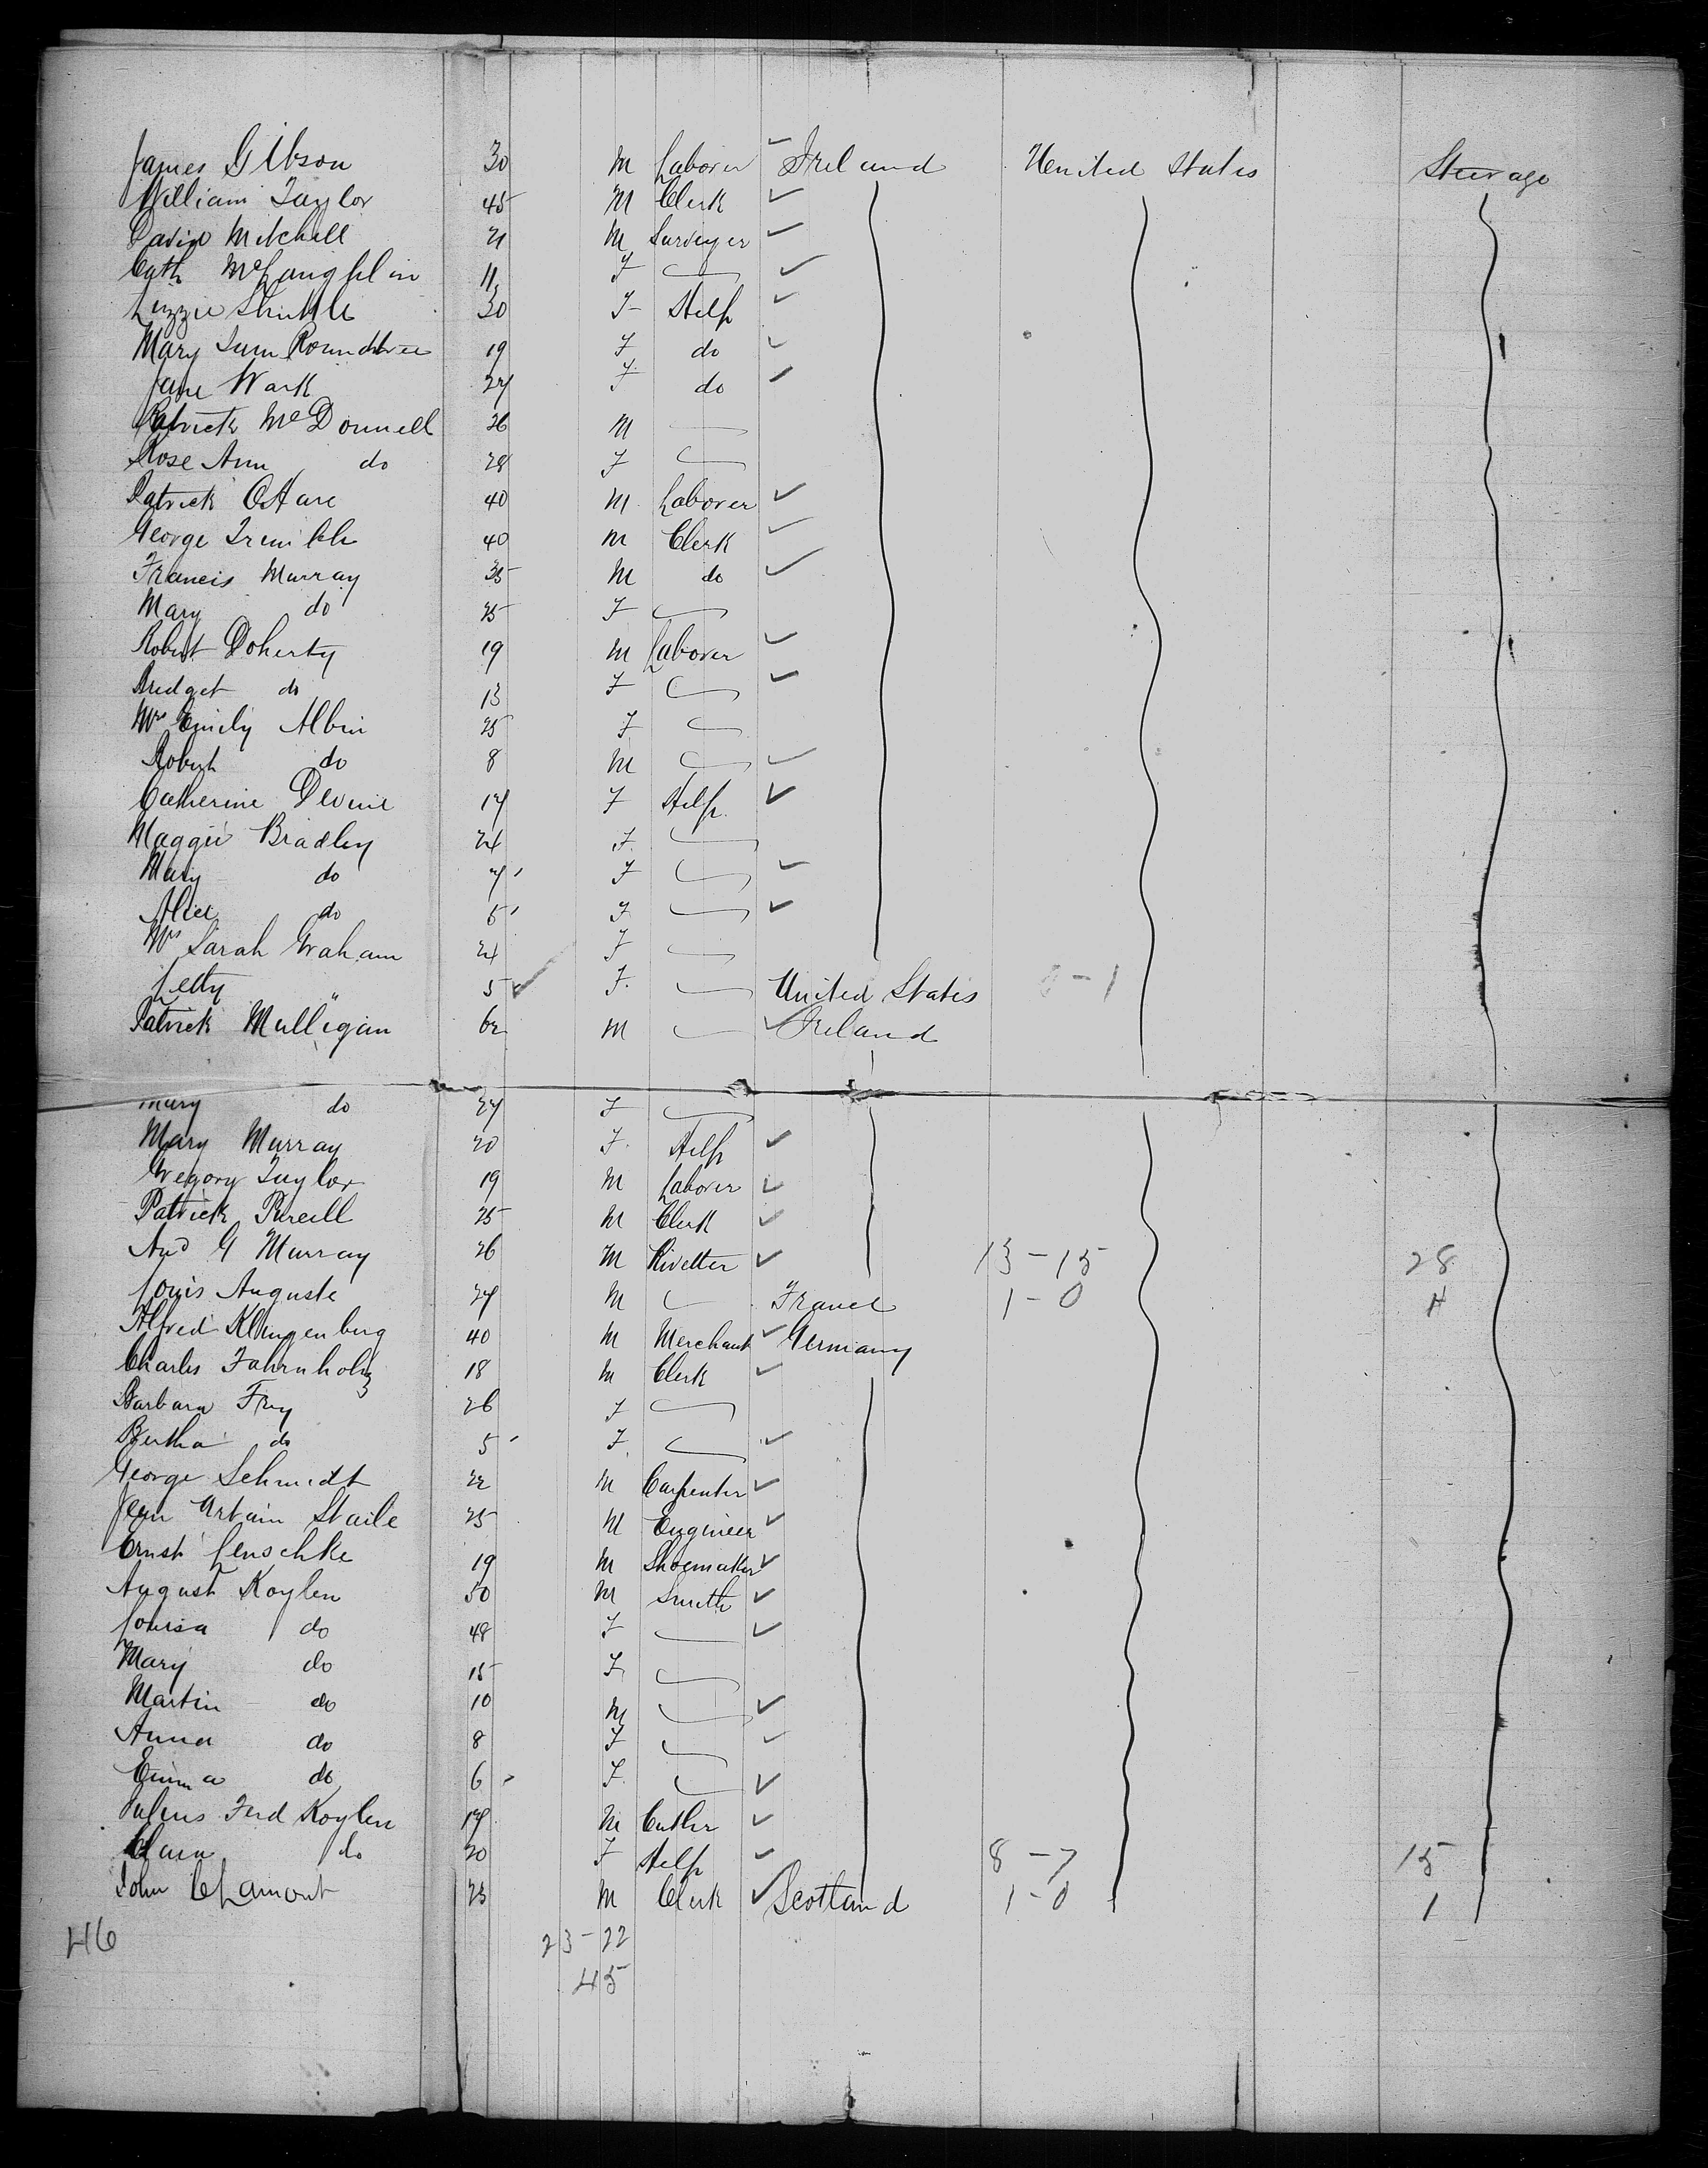 James Gibson 30 M Laborer Ireland United States Steerage
William Taylor 45 M Clerk
David Mitchell 21 M Surveyer
Cath McLaughlin 11 F
Lizzie 30 F Help
Mary Roundtree 19 F do
Jane Wark 27 F do
Patrick McDonnell 26 M
Rose Ann do 28 F
Patrick OHare 40 M Laborer
George Trimble 40 M Clerk
Francis Murray 35 M do
Mary do 25 F
Robert Doherty 19 M Laborer
Bridget do 13 F
Mrs Emily Albin 25 F
Robert do 8 M
Catherine Devine 17 F Help
Maggie Bradley 24 F
Mary do 7 F
Alice do 5 F
Mrs Sarah Graham 24 F
Letty " 5 F United States 0-1
Patrick Mulligan 62 M Ireland
Mary do 27 F
Mary Murray 20 F Help
Gregory Taylor 19 M Laborer
Patrick Purcill 25 M Clerk
And G Murray 26 M Rivetter 13-15 28
Louis Auguste 27 M France 1-0
Alfred Klingenberg 40 M Merchant Germany
Charles Fahrnholz 18 M Clerk
Barbara Frey 26 F
Bertha do 5 F
George Schmidt 22 M Carpenter
Jean Urbain Staile 25 M Engineer
Ernst Lenschke 19 M Shoemaker
August Koylen 50 M Smith
Louisa do 48 F
Mary do 15 F
Martin do 10 M
Anna do 8 F
Emma do 6 F
Julius Ferd Koylen 17 M Cutler
Clara do 20 F Help 8-7 15
John Lamont 23 M Clerk Scotland 1-0 1
46 23-22
45